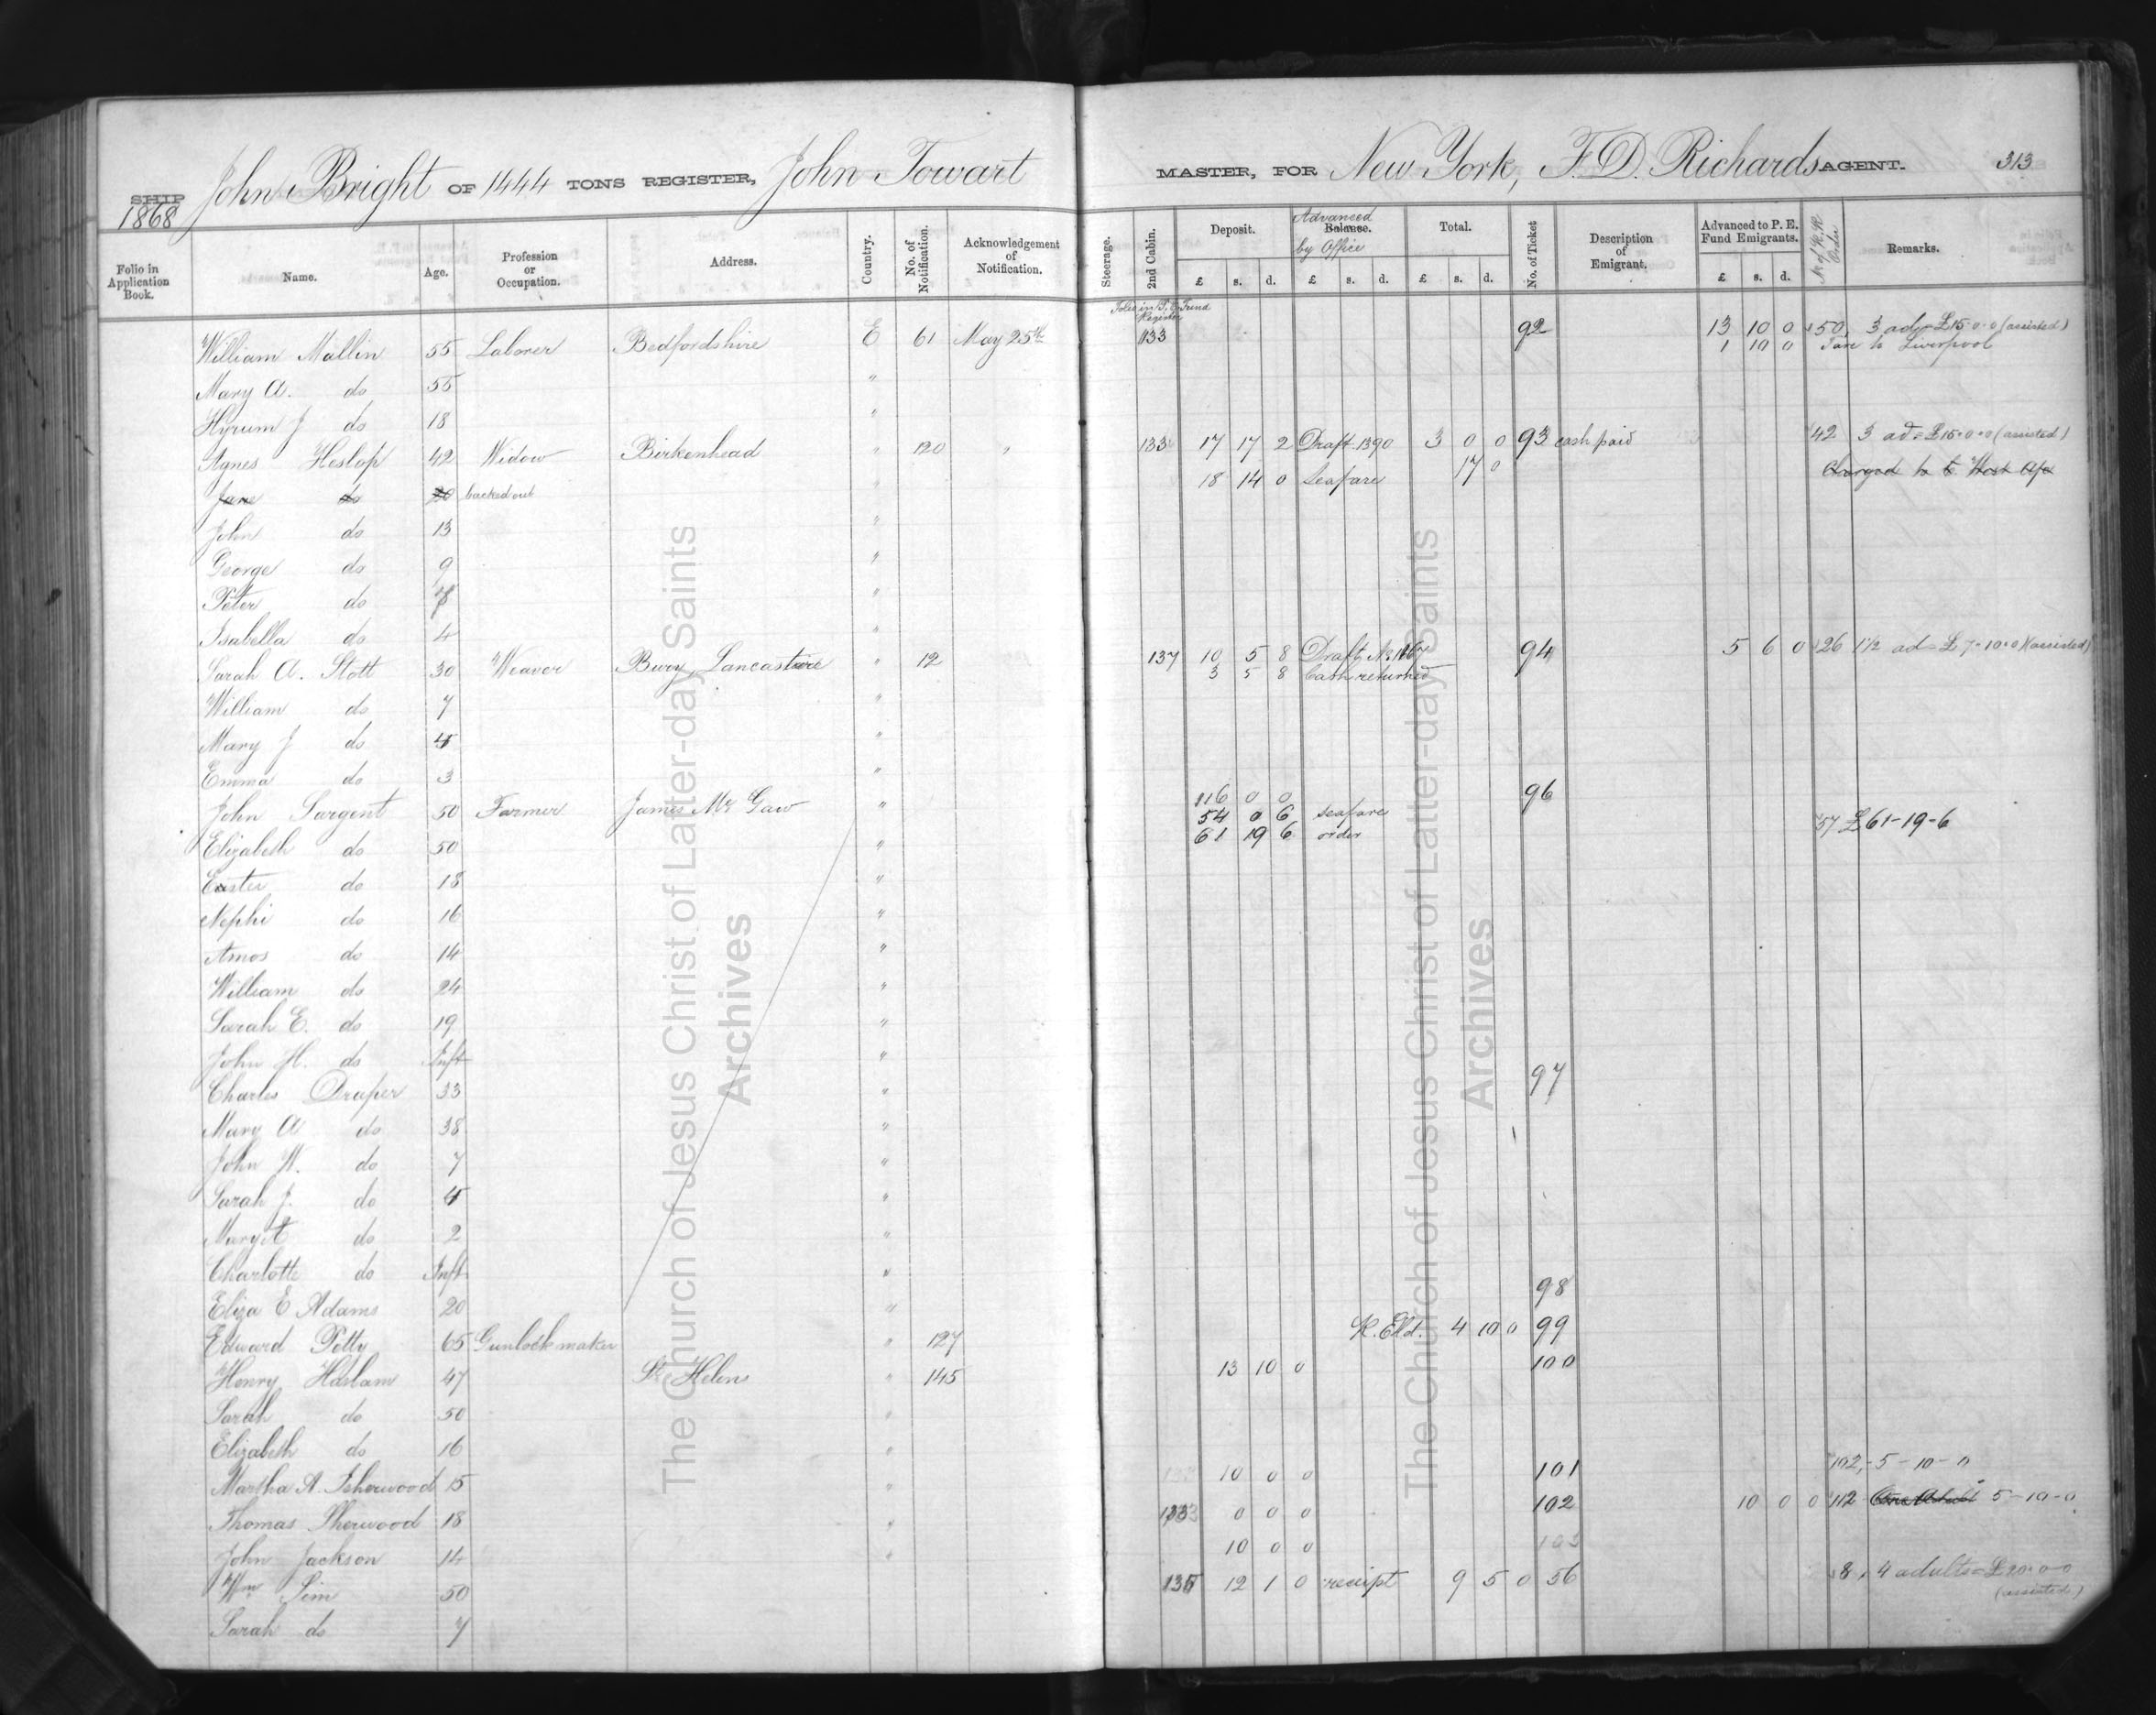 SHIP John Bright OF 1444 TONS REGISTER, John Towart MASTER, FOR New York, F. D. Richards AGENT. 313
1868
Folio in Application Book. Name. Age. Profession or Occupation. Address. Country. No. of Notification. Acknowledgement of Notification. Steerage. 2nd Cabin. Deposit. £ s. d. Balance. Advanced by Office £ s. d. Total. £ s. d. No. of Ticket Description of Emigrant. Advanced to P. E. Fund Emigrants. £ s. d. Remarks.
Folio in P. E. Fund Register
William Mallin 55 Laborer Bedfordshire E 61 May 25th 133 92 13 10 0 50 3 ad = £15-0-0 (assisted)
1 10 0 Fare to Liverpool
Mary A. do 55 "
Hyrum J do 18 "
Agnes Heslop 42 Widow Birkenhead " 120 " 133 17 17 2 Draft 1390 3 0 0 93 cash paid 42 3 ad = £15-0-0 (assisted)
18 14 0 Seafare 17 0 Charged to
Jane do 20 backed out
John do 13 "
George do 9 "
Peter do "
Isabella do 4 "
Sarah A. Stott 30 Weaver Bury, Lancashire " 12 137 10 5 8 Draft No 1167 94 5 6 0 26 1 1/2 ad = £7-10-0 (assisted)
3 5 8 Cash returned
William do 7 "
Mary J do "
Emma do 3 "
John Sargent 50 Farmer James Mc Gaw " 116 0 0 96
54 0 6 seafare 57 £61-19-6
61 19 6 order
Elizabeth do 50 "
Easter do 18 "
Nephi do 16 "
Amos do 14 "
William do 24 "
Sarah E. do 19 "
John H. do Inft "
Charles Draper 33 " 97
Mary A do 38 "
John W. do 7 "
Sarah J. do "
Margt do 2 "
Charlotte do Inft "
Eliza E Adams 20 " 98
Edward Petty 65 Gunlock maker " 127 4 10 0 99
Henry Haslam 47 St Helens " 145 13 10 0 100
Sarah do 50 "
Elizabeth do 16 "
Martha A. Isherwood 15 " 10 0 0 101 102, - 5 - 10 - 0
Thomas Sherwood 18 " 133 0 0 0 102 10 0 0 112 5 - 10 - 0
John Jackson 14 " 10 0 0 103
Wm Sim 50 135 12 1 0 receipt 9 5 0 56 8, 4 adults = £20-0-0
(assisted)
Sarah do 7
The Church of Jesus Christ of Latter-day Saints
Archives
The Church of Jesus Christ of Latter-day Saints
Archives